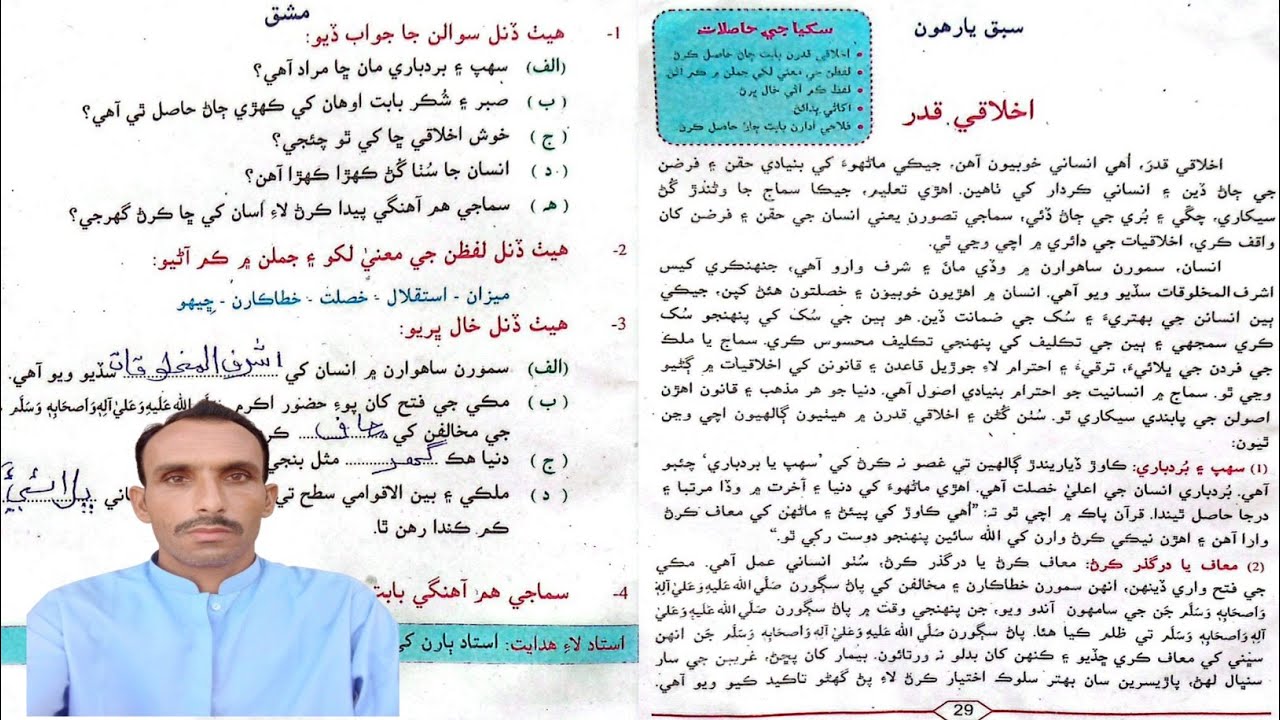 سبق يارهون
سکيا جي حاصلات
اخلاقي قدرن بابت ڄاڻ حاصل ڪرڻ
لفظن جي معنيٰ لکي جملن ۾ ڪم آڻڻ
لفظ ڪم آڻي خال ڀرڻ
اکاڻي ٻڌائڻ
فلاحي ادارن بابت ڄاڻ حاصل ڪرڻ
اخلاقي قدر
اخلاقي قدر، اُهي انساني خوبيون آهن، جيڪي ماڻهوءَ کي بنيادي حقن ۽ فرضن
جي ڄاڻ ڏين ۽ انساني ڪردار کي ٺاهين. اهڙي تعليم، جيڪا سماج جا وڻندڙ گُڻ
سيکاري، چڱي ۽ بُري جي ڄاڻ ڏئي، سماجي تصورن يعني انسان جي حقن ۽ فرضن کان
واقف ڪري، اخلاقيات جي دائري ۾ اچي وڃي ٿي.
انسان، سمورن ساهوارن ۾ وڏي مانَ ۽ شرف وارو آهي، جنهنڪري کيس
اشرف المخلوقات سڏيو ويو آهي. انسان ۾ اهڙيون خوبيون ۽ خصلتون هئڻ کپن، جيڪي
ٻين انسانن جي بهتريءَ ۽ سُک جي ضمانت ڏين. هو ٻين جي سُک کي پنهنجو سُک
ڪري سمجهي ۽ ٻين جي تڪليف کي پنهنجي تڪليف محسوس ڪري. سماج يا ملڪ
جي فردن جي ڀلائيءَ، ترقيءَ ۽ احترام لاءِ جوڙيل قاعدن ۽ قانونن کي اخلاقيات ۾ ڳڻيو
وڃي ٿو. سماج ۾ انسانيت جو احترام بنيادي اصول آهي. دنيا جو هر مذهب ۽ قانون اهڙن
اصولن جي پابندي سيکاري ٿو. سُٺن گُڻن ۽ اخلاقي قدرن ۾ هيٺيون ڳالهيون اچي وڃن
ٿيون:
(1) سهپ ۽ بُردباري: ڪاوڙ ڏياريندڙ ڳالهين تي غصو نہ ڪرڻ کي ’سهپ يا بردباري‘ چئبو
آهي. بُردباري انسان جي اعليٰ خصلت آهي. اهڙي ماڻهوءَ کي دنيا ۽ آخرت ۾ وڏا مرتبا ۽
درجا حاصل ٿيندا. قرآن پاڪ ۾ اچي ٿو تہ: ”اُهي ڪاوڙ کي پيئڻ ۽ ماڻهن کي معاف ڪرڻ
وارا آهن ۽ اهڙن نيڪي ڪرڻ وارن کي الله سائين پنهنجو دوست رکي ٿو.“
(2) معاف يا درگذر ڪرڻ: معاف ڪرڻ يا درگذر ڪرڻ، سُٺو انساني عمل آهي. مڪي
جي فتح واري ڏينهن، انهن سمورن خطاڪارن ۽ مخالفن کي پاڻ سڳورن صَلَّي الله عَلَيهِ وَعَليٰ آلِهٖ
وَاَصحَابِهٖ وَسَلَّم جن جي سامهون آندو ويو، جن پنهنجي وقت ۾ پاڻ سڳورن صَلَّي الله عَلَيهِ وَعَليٰ
آلِهٖ وَاَصحَابِهٖ وَسَلَّم تي ظلم ڪيا هئا. پاڻ سڳورن صَلَّي الله عَلَيهِ وَعَليٰ آلِهٖ وَاَصحَابِهٖ وَسَلَّم جَن انهن
سڀني کي معاف ڪري ڇڏيو ۽ ڪنهن کان بدلو نہ ورتائون. بيمار کان پڇڻ، غريبن جي سار
سنڀال لهڻ، پاڙيسرين سان بهتر سلوڪ اختيار ڪرڻ لاءِ پڻ گهڻو تاڪيد ڪيو ويو آهي.
29
مشق
1- هيٺ ڏنل سوالن جا جواب ڏيو:
(الف) سهپ ۽ بردباري مان ڇا مراد آهي؟
(ب) صبر ۽ شُڪر بابت اوهان کي ڪهڙي ڄاڻ حاصل ٿي آهي؟
(ج) خوش اخلاقي ڇا کي ٿو چئجي؟
(د) انسان جا سُٺا گُڻ ڪهڙا ڪهڙا آهن؟
(هہ) سماجي هم آهنگي پيدا ڪرڻ لاءِ اسان کي ڇا ڪرڻ گهرجي؟
2- هيٺ ڏنل لفظن جي معنيٰ لکو ۽ جملن ۾ ڪم آڻيو:
ميزان - استقلال - خصلت - خطاڪارن - ڇيهو
3- هيٺ ڏنل خال ڀريو:
(الف) سمورن ساهوارن ۾ انسان کي اشرف المخلوقات سڏيو ويو آهي.
(ب) مڪي جي فتح کان پوءِ حضور اڪرم صَلَّي الله عَلَيهِ وَعَليٰ آلِهٖ وَاَصحَابِهٖ وَسَلَّم
جي مخالفن کي معاف ڪر
(ج) دنيا هڪ گهر مثل بنجي
(د) ملڪي ۽ بين الاقوامي سطح تي اني ڀلائي
ڪم ڪندا رهن ٿا.
4- سماجي هم آهنگي بابت
استاد لاءِ هدايت: استاد ٻارن کي